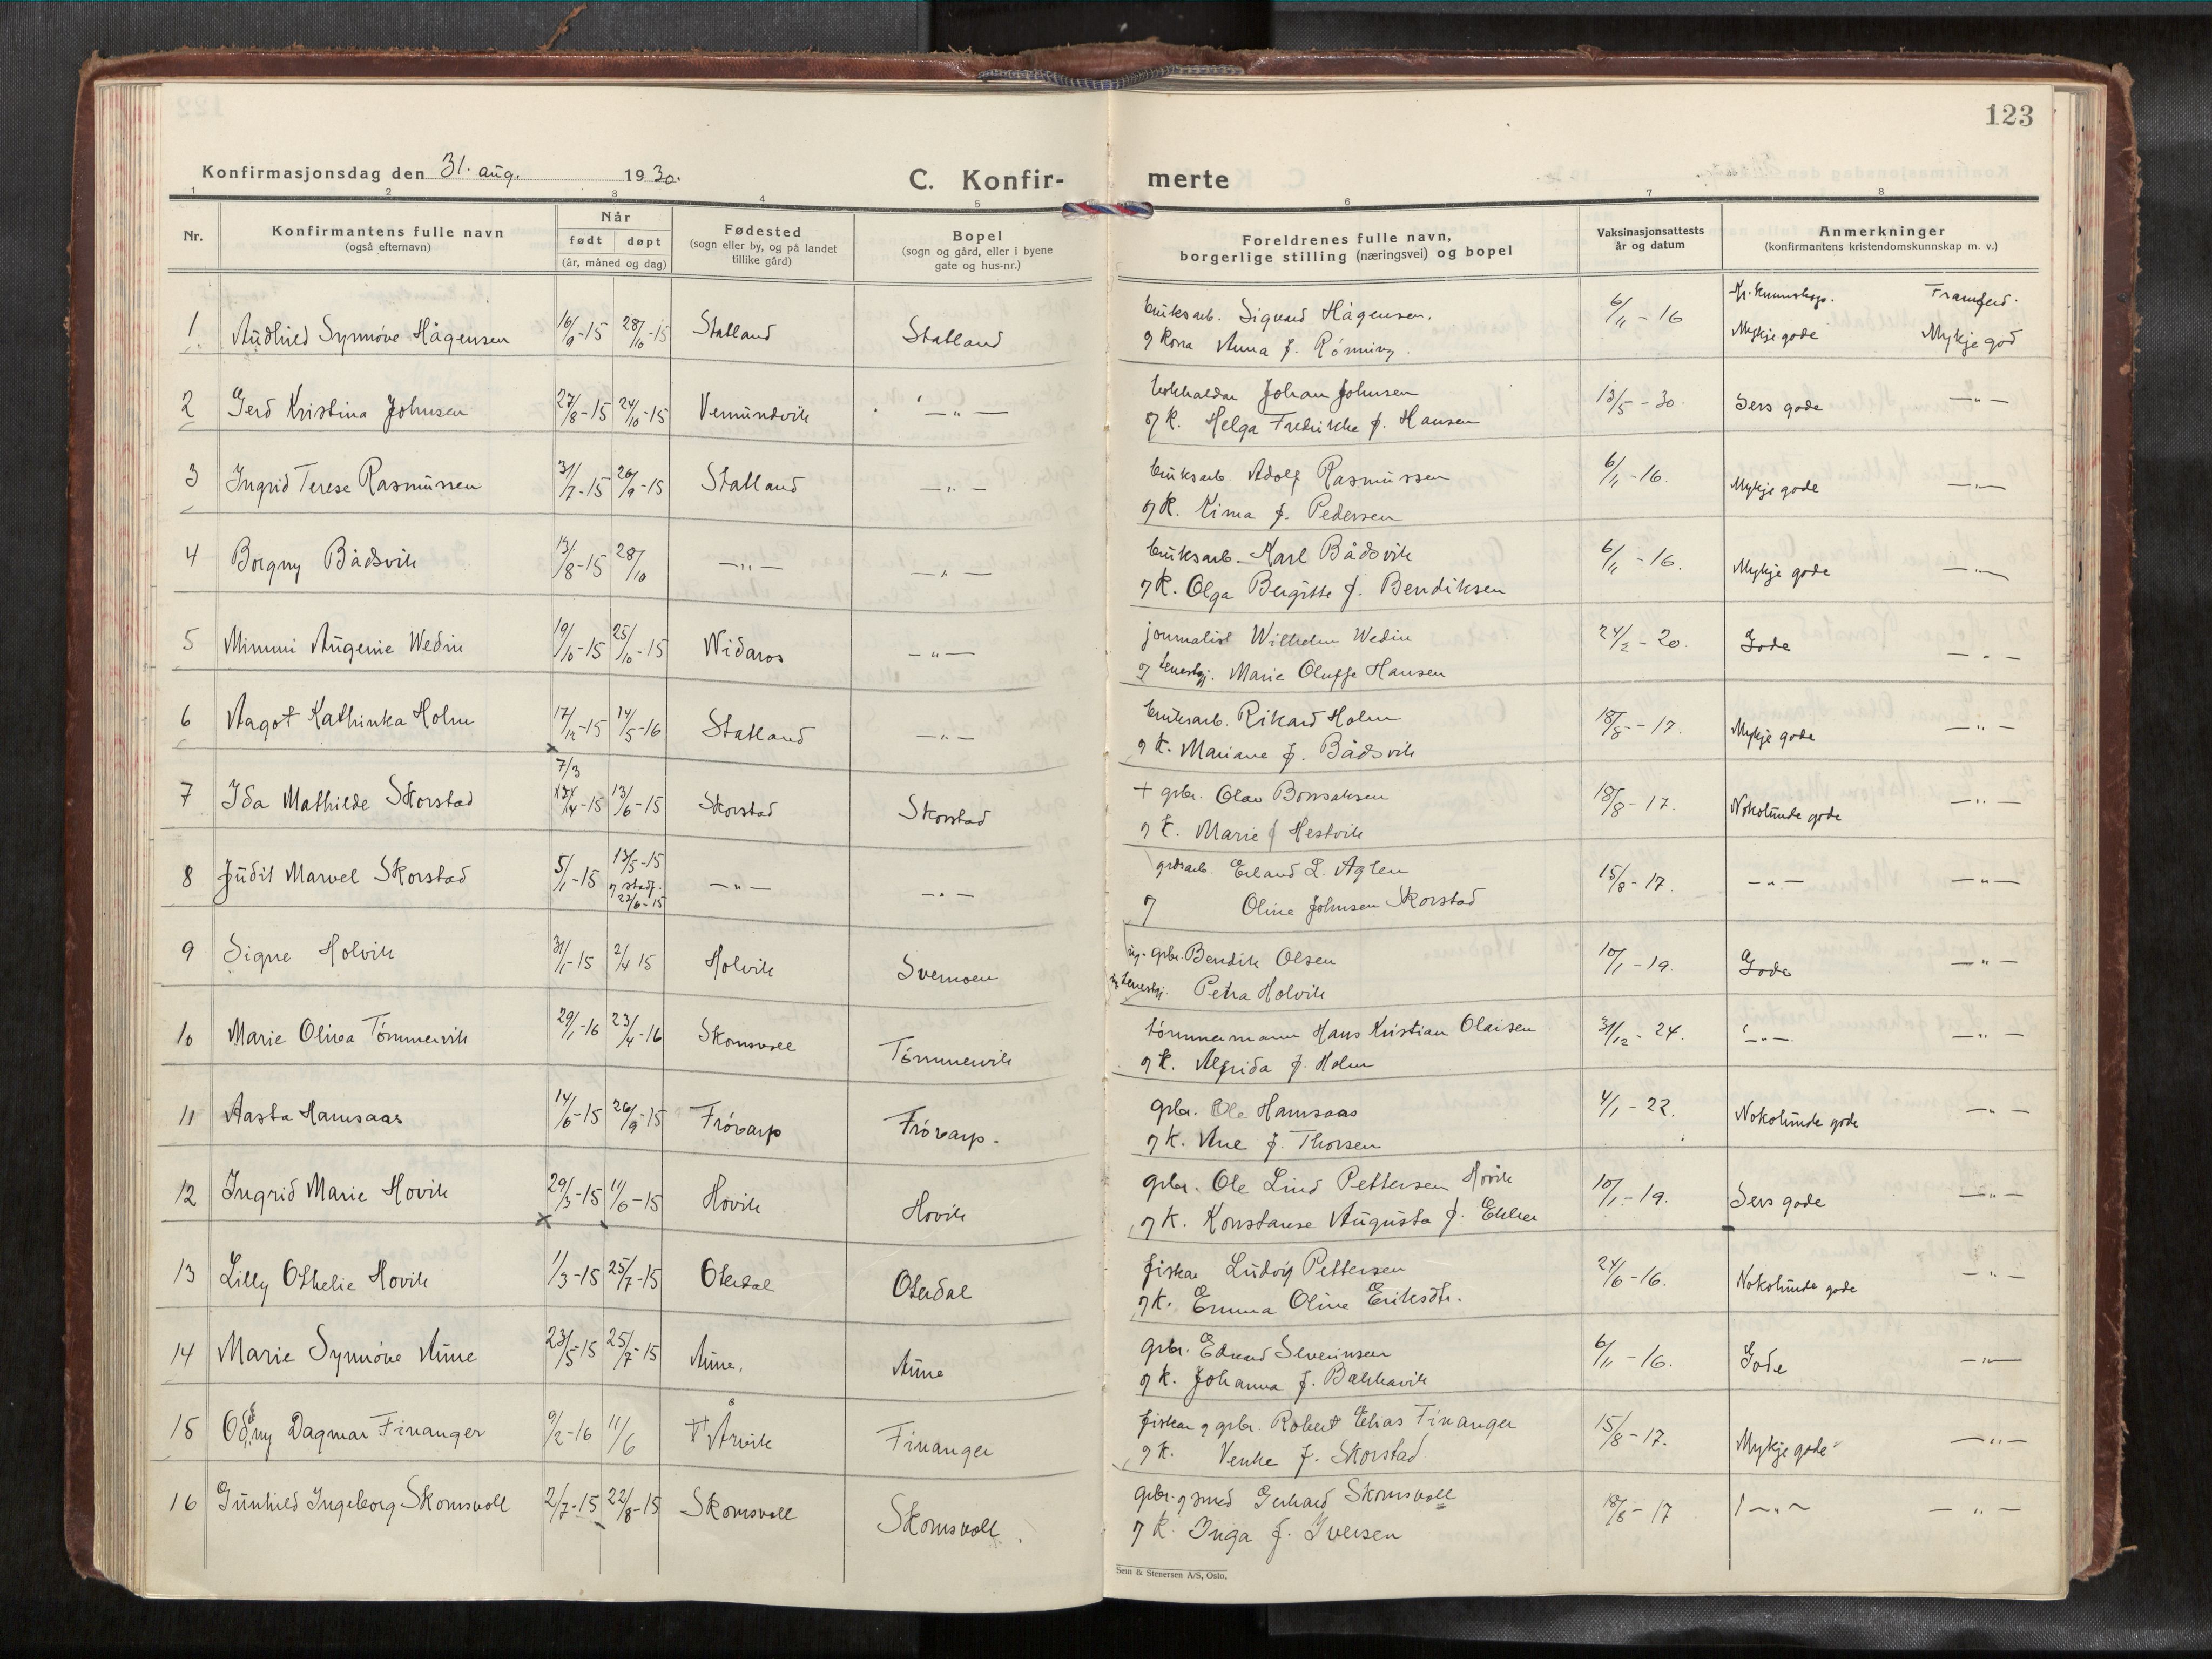 123
Konfirmasjonsdag den 31. aug. 1930.
C. Konfir-
merte
1 2 3 4 5 6 7 8
Nr.
Konfirmantens fulle navn
(også efternavn)
Når
født døpt
(år, måned og dag)
Fødested
(sogn eller by, og på landet
tillike gård)
Bopel
(sogn og gård, eller i byene
gate og hus-nr.)
Foreldrenes fulle navn,
borgerlige stilling (næringsvei) og bopel
Vaksinasjonsattests
år og datum
Anmerkninger
(konfirmantens kristendomskunnskap m. v.)
Kr. kunnskap. Framferd.
1 Audhild Synnöve Hågensen 16/9-15 28/10-15 Statland Statland bruksarb. Sigvard Hågensen. 6/11-16 Mykje gode Mykje god
og kona Anna f. Rönning.
2 Gerd Kristina Johnsen 27/8-15 24/10-15 Vemundvik —„— Johan Johnsen 13/5-30. Sers gode —„—
og K. Helga Fredrikke f. Hansen
3 Ingrid Terese Rasmussen 31/7-15 26/9-15 Statland —„— bruksarb. Adolf Rasmussen 6/11-16. Mykje gode —„—
og K. Kima f. Pedersen
4 Borgny Bådsvik 13/8-15 28/10 —„— —„— bruksarb. Karl Bådsvik 6/11-16. Mykje gode —„—
og K. Olga Bergitte f. Bendiksen
5 Mimmi Augenie Wedin 19/10-15 25/10-15 Nidaros —„— journalist Wilhelm Wedin 24/2-20. Gode —„—
og tenestgj. Marie Oluffe Hansen
6 Aagot Kathinka Holm 17/12-15 14/5-16 Statland —„— bruksarb. Rikard Holm 18/8-17. Mykje gode —„—
og K. Mariane f. Bådsvik
7 Ida Mathilde Skorstad 7/3 -15 13/6-15 Skorstad Skorstad + gbr. Olav Bonsaksen 18/8-17. Nokolunde gode —„—
og K. Marie f Hestvik
8 Judit Marvel Skorstad 5/1-15 13/5-15 og stadf. 22/6-15 —„— —„— grdsarb. Erland L. Aglen 15/8-17. —„— —„—
og Oline Johnsen Skorstad
9 Signe Holvik 31/1-15 2/4 15 Holvik Svemoen ug. gbr. Bendik Olsen 10/1-19. Gode —„—
ug. tenestgj. Petra Holvik
10 Marie Olivea Tömmervik 29/1-16 23/4-16 Skomsvoll Tömmervik tömmermann Hans Kristian Olaisen 31/12-24. —„— —„—
og K. Alfrida f. Holm
11 Aasta Hamsaas 14/6-15 26/9-15 Frövarp Frövarp. gbr. Ole Hamsaas 4/1-22. Nokolunde gode —„—
og K. Ane f. Thorsen
12 Ingrid Marie Hovik 29/3-15 11/6-15 Hovik Hovik gbr. Ole Lind Pettersen Hovik 10/1-19. Sers gode —„—
og K. Konstanse Augusta f. Ekker
13 Lilly Othelie Hovik 1/3-15 25/7-15 Oterdal Oterdal fiskar Ludvig Pettersen 24/6-16. Nokolunde gode —„—
og K. Emma Oline Eriksdtr.
14 Marie Synnöve Aune 23/5-15 25/7-15 Aune. Aune gbr. Edvard Severinsen 6/11-16. Gode —„—
og K. Johanna f. Bakkavik
15 Oddny Dagmar Finanger 9/2-16 11/6 Årvik Finanger fiskar og gbr. Robert Elias Finanger 15/8-17. Mykje gode —„—
og K. Venke f. Skorstad
16 Gunhild Ingeborg Skomsvoll 2/7-15 22/8-15 Skomsvoll Skomsvoll gbr. og smed Gerhard Skomsvoll 18/8-17 —„— —„—
og K. Inga f. Iversen
Sem & Stenersen A/S, Oslo.